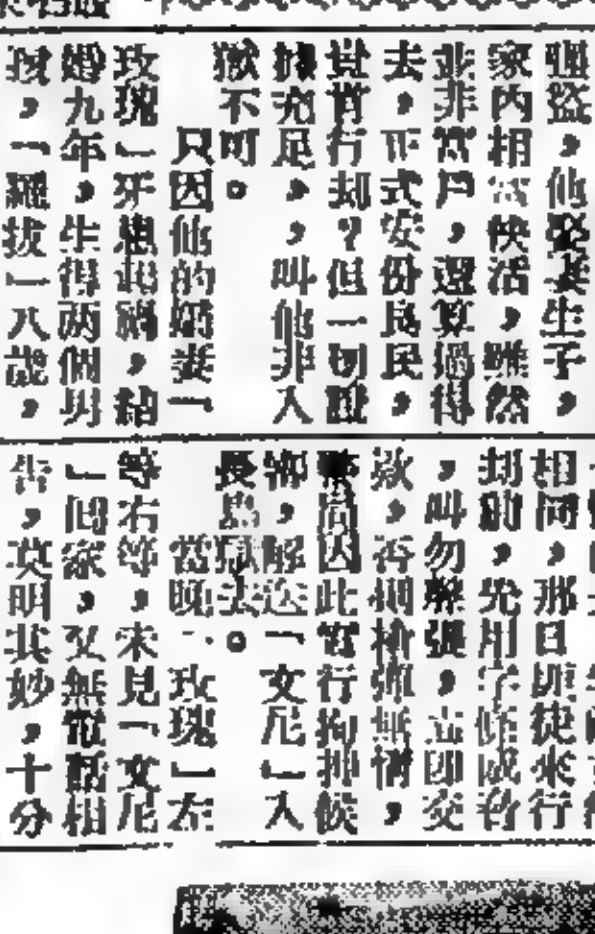 强盜，他娶妻生子，
家内相當快活，雖然
並非富戶，還算過得
去，正式安份良民，
豈肯行刧？但一切證
據充足，，叫他非入
獄不可。
只因他的嬌妻「
玫瑰」牙惹起禍，結
婚九年，生得两個男
孩，「羅拔」八歲，
相同，那日
刧前，先用字條威脅
，叫勿聲張，立即交
欵，否則槍彈無情，
因此實行拘押候
，解送「文尼」入
長島獄去。
當晚，玫瑰」左
等右等，未見「文尼
」回家，又無電話相
告，莫明其妙，十分